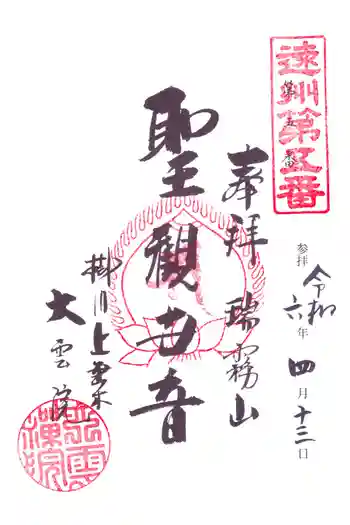 遠州第五番
第五番
参拝 令和六年 四月十三日
奉拝 瑞霧山
聖観世音
掛川上垂木
大雲院